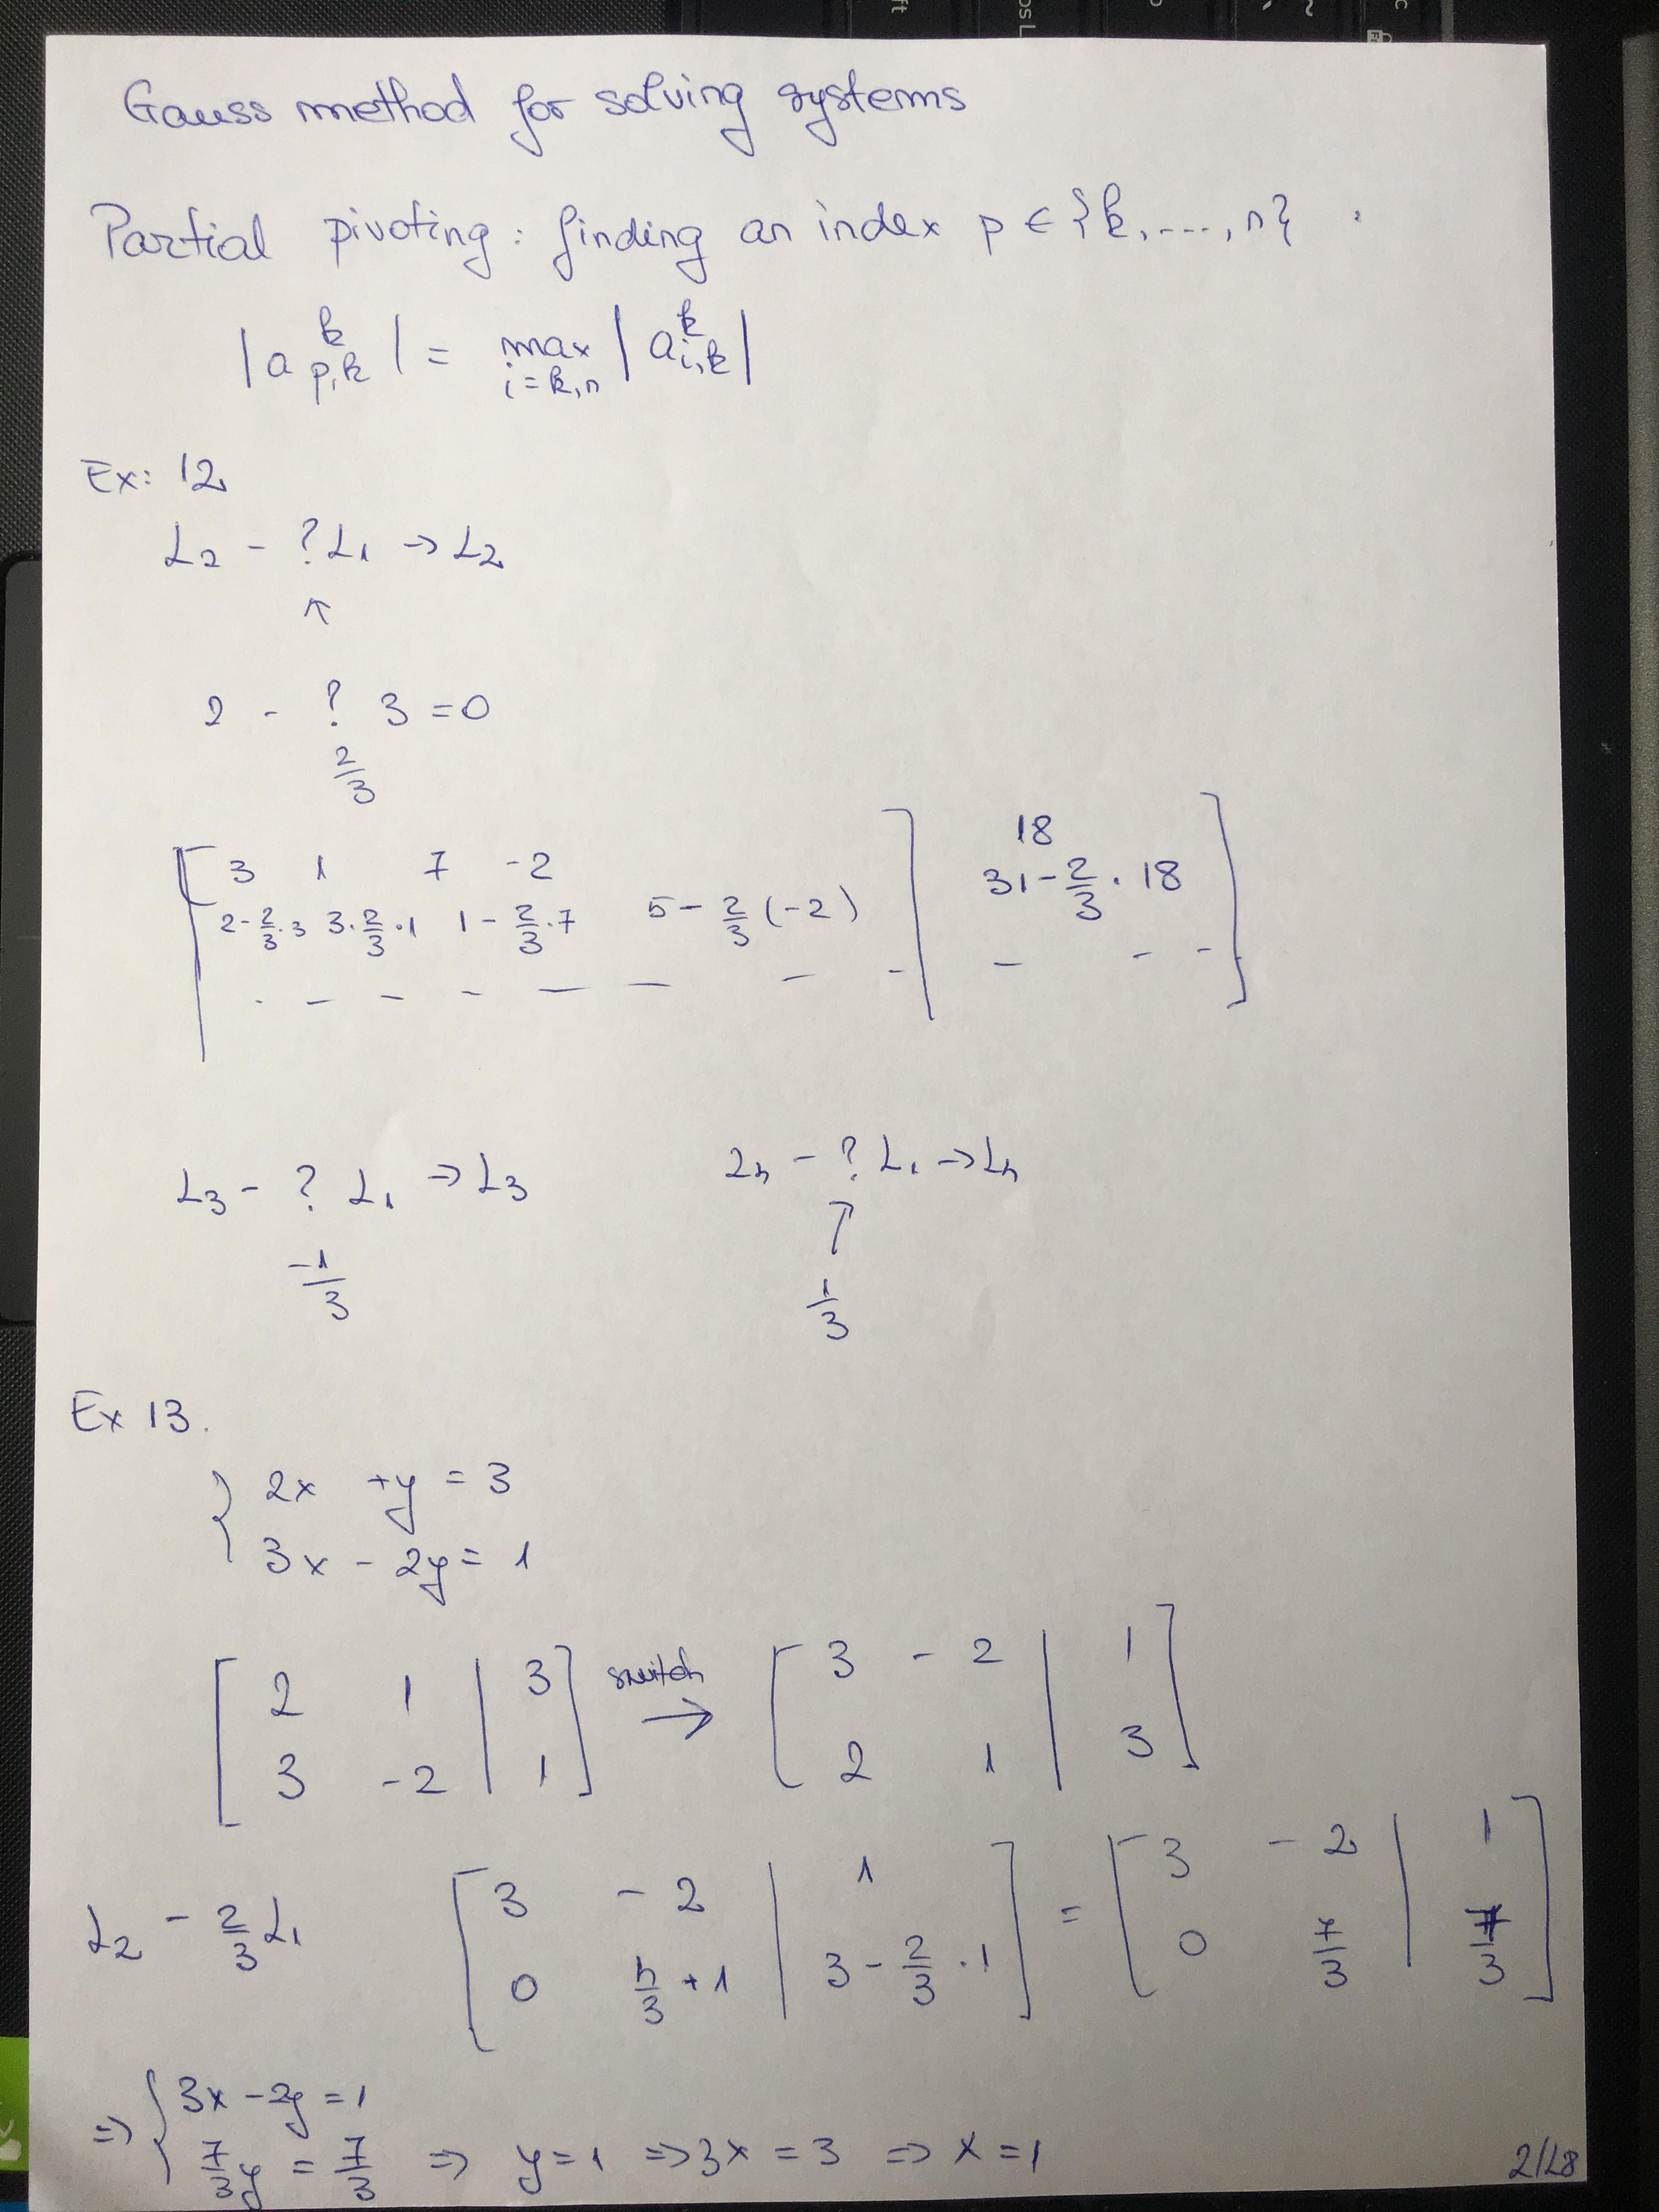 Gauss method for solving systems
Partial pivoting: finding an index p ∈ {k, ..., n} :
|a^k_{p,k}| = max_{i=k,n} |a^k_{i,k}|
Ex: 12
L2 - ? L1 → L2
↑
2 - ? 3 = 0
2/3
[ 3 1 7 -2 ] 18 ]
2-2/3·3 3·2/3·1 1-2/3·7 5-2/3(-2) ] 31-2/3·18 ]
. - - - - - - - ] - - - ]
L3 - ? L1 → L3 Ln - ? L1 → Ln
-1/3 ↑
1/3
Ex 13.
{ 2x +y = 3
3x - 2y = 1
[ 2 1 | 3 ] switch → [ 3 -2 | 1 ]
[ 3 -2 | 1 ] [ 2 1 | 3 ]
L2 - 2/3 L1 [ 3 -2 | 1 ] = [ 3 -2 | 1 ]
[ 0 5/3 + 1 | 3 - 2/3·1 ] [ 0 7/3 | 7/3 ]
=> { 3x - 2y = 1
7/3 y = 7/3 => y = 1 => 3x = 3 => x = 1
2/L8